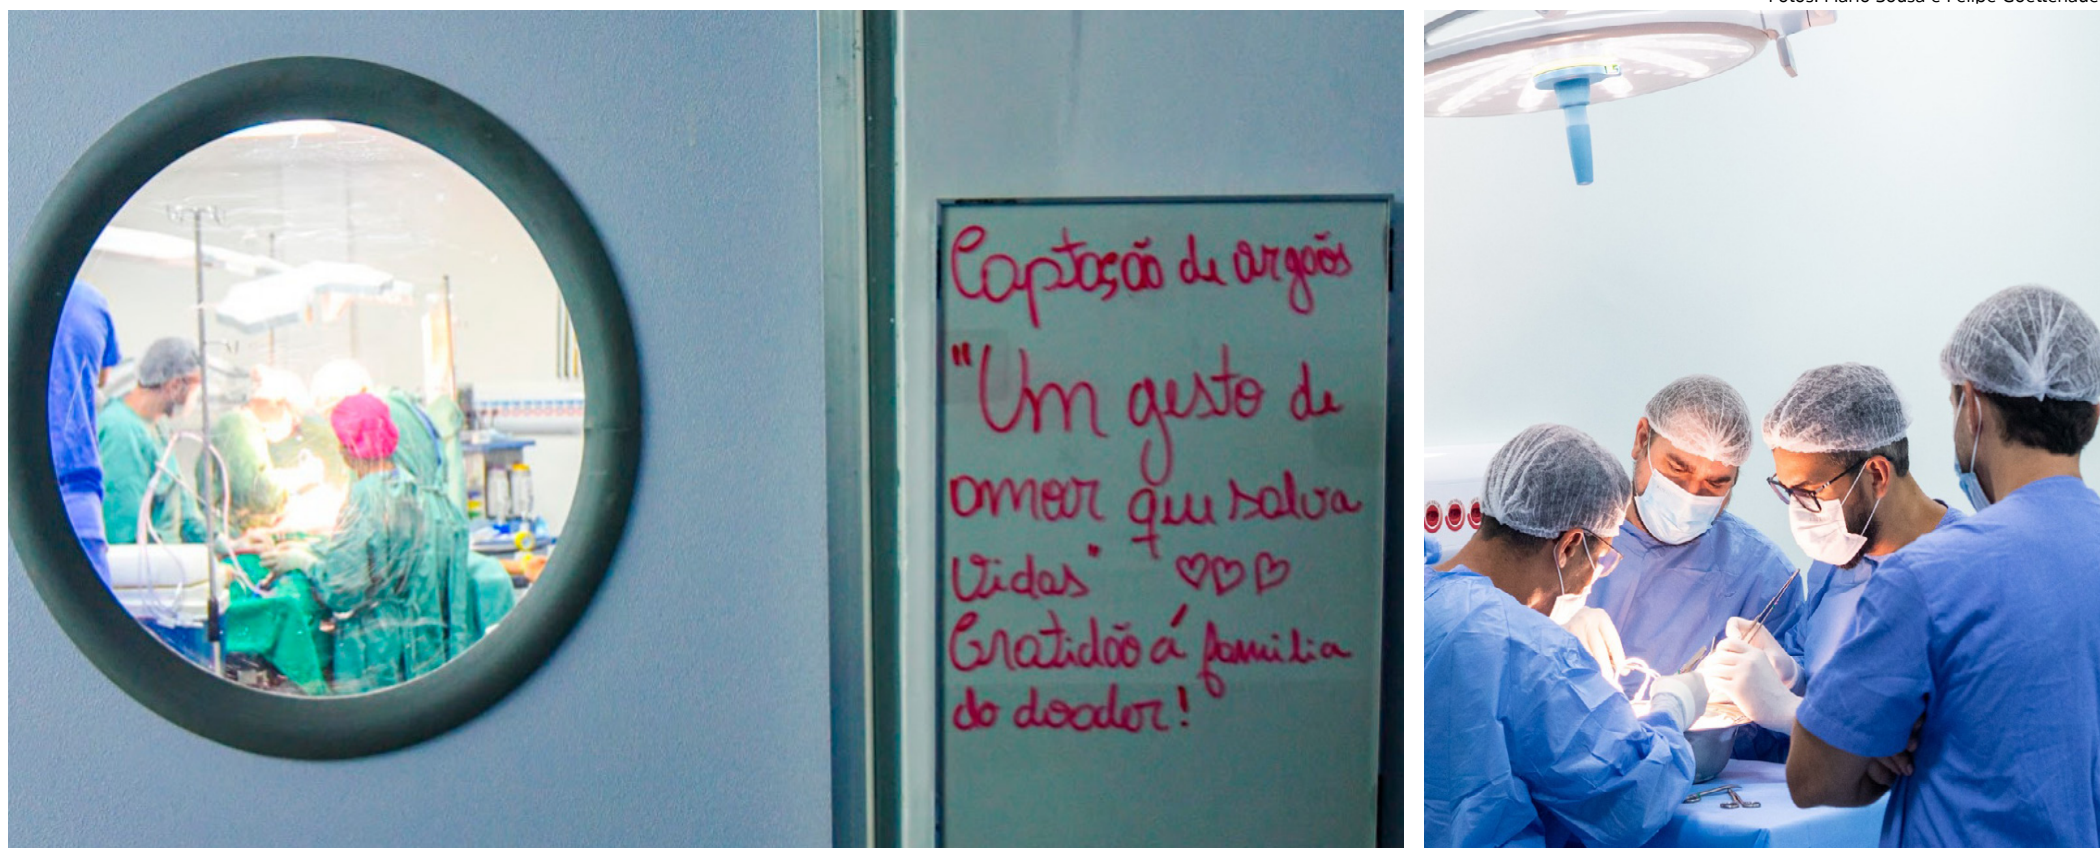 Captação de orgãos
"Um gesto de
amor que salva
Vidas"
Gratidão á família
do doador!